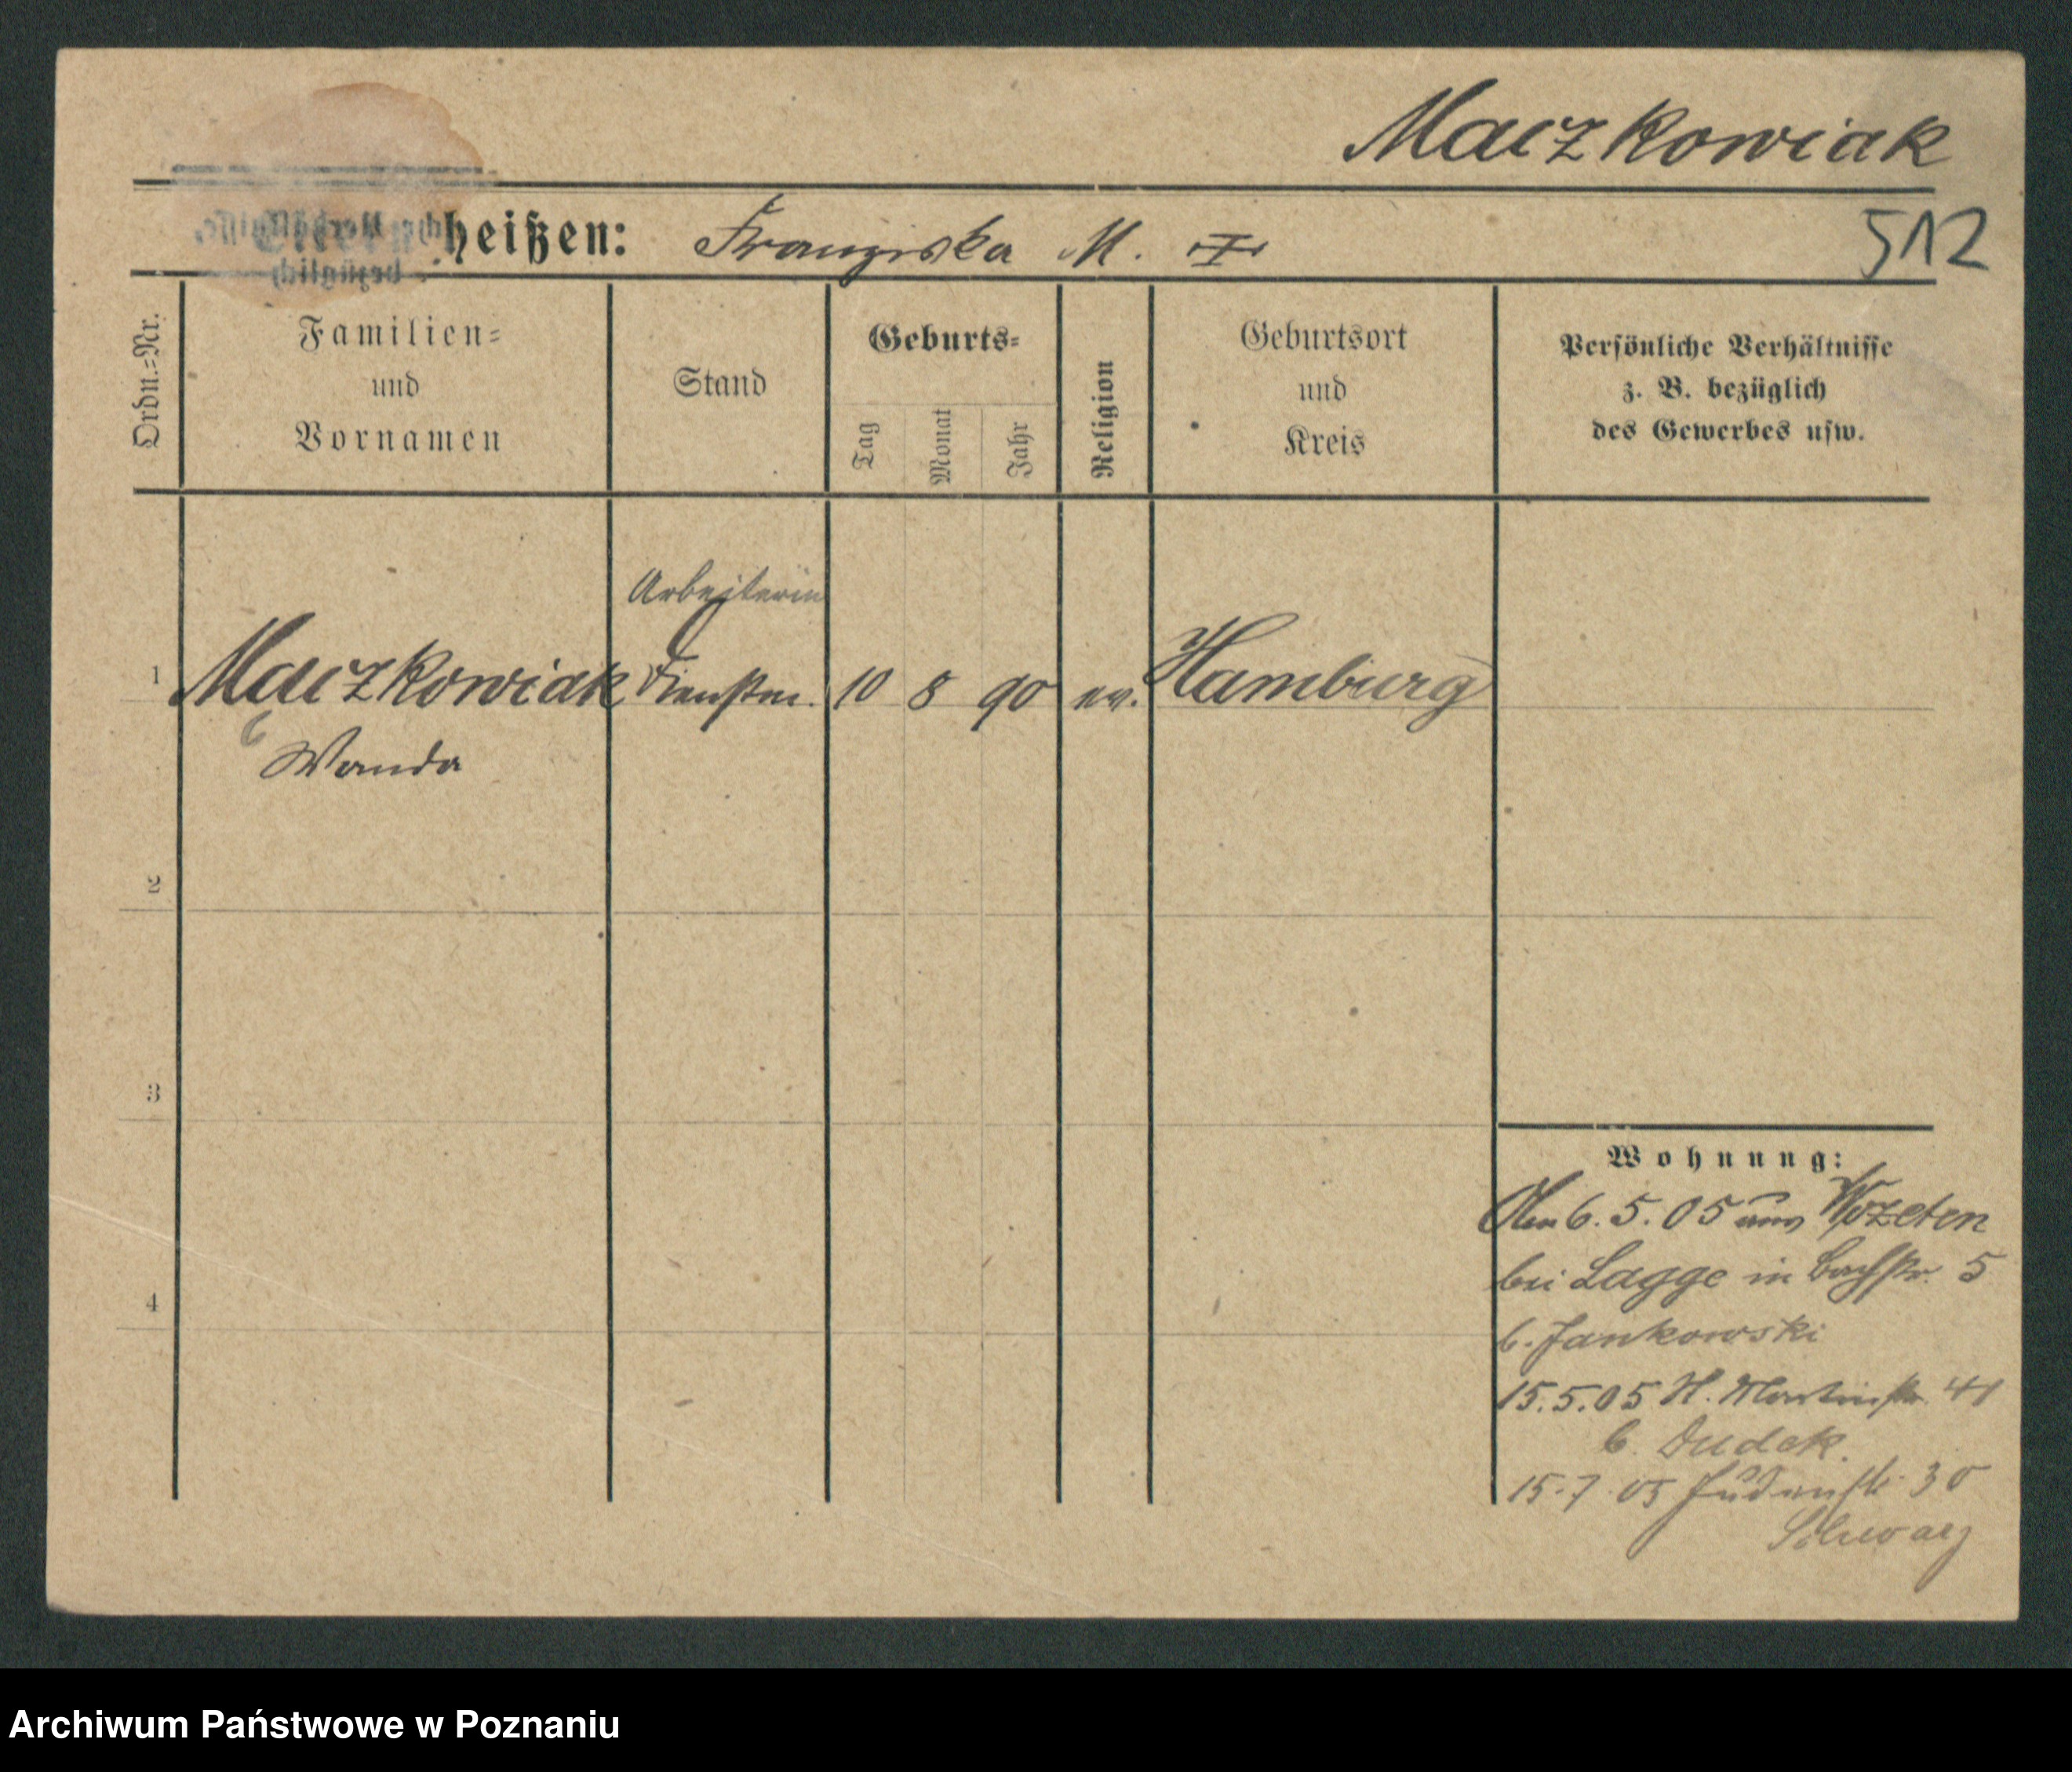 Maczkowiak
heißen: Franziska M.
512
Ordn.=Nr.
Familien=
und
Vornamen
Stand
Geburts=
Tag
Monat
Jahr
Religion
Geburtsort
und
Kreis
Persönliche Verhältnisse
z. B. bezüglich
des Gewerbes usw.
Arbeiterin
1 Maczkowiak Dienstm. 10 8 90 ev. Hamburg
Wanda
2
3
4
Wohnung:
6. 5. 05 aus
bei Lagge in Bachstr. 5
b. Jankowski
15.5.05 St. Martinstr. 41
b. Dudek.
15.7 05 Judenstr. 30
Schwarz
Archiwum Państwowe w Poznaniu